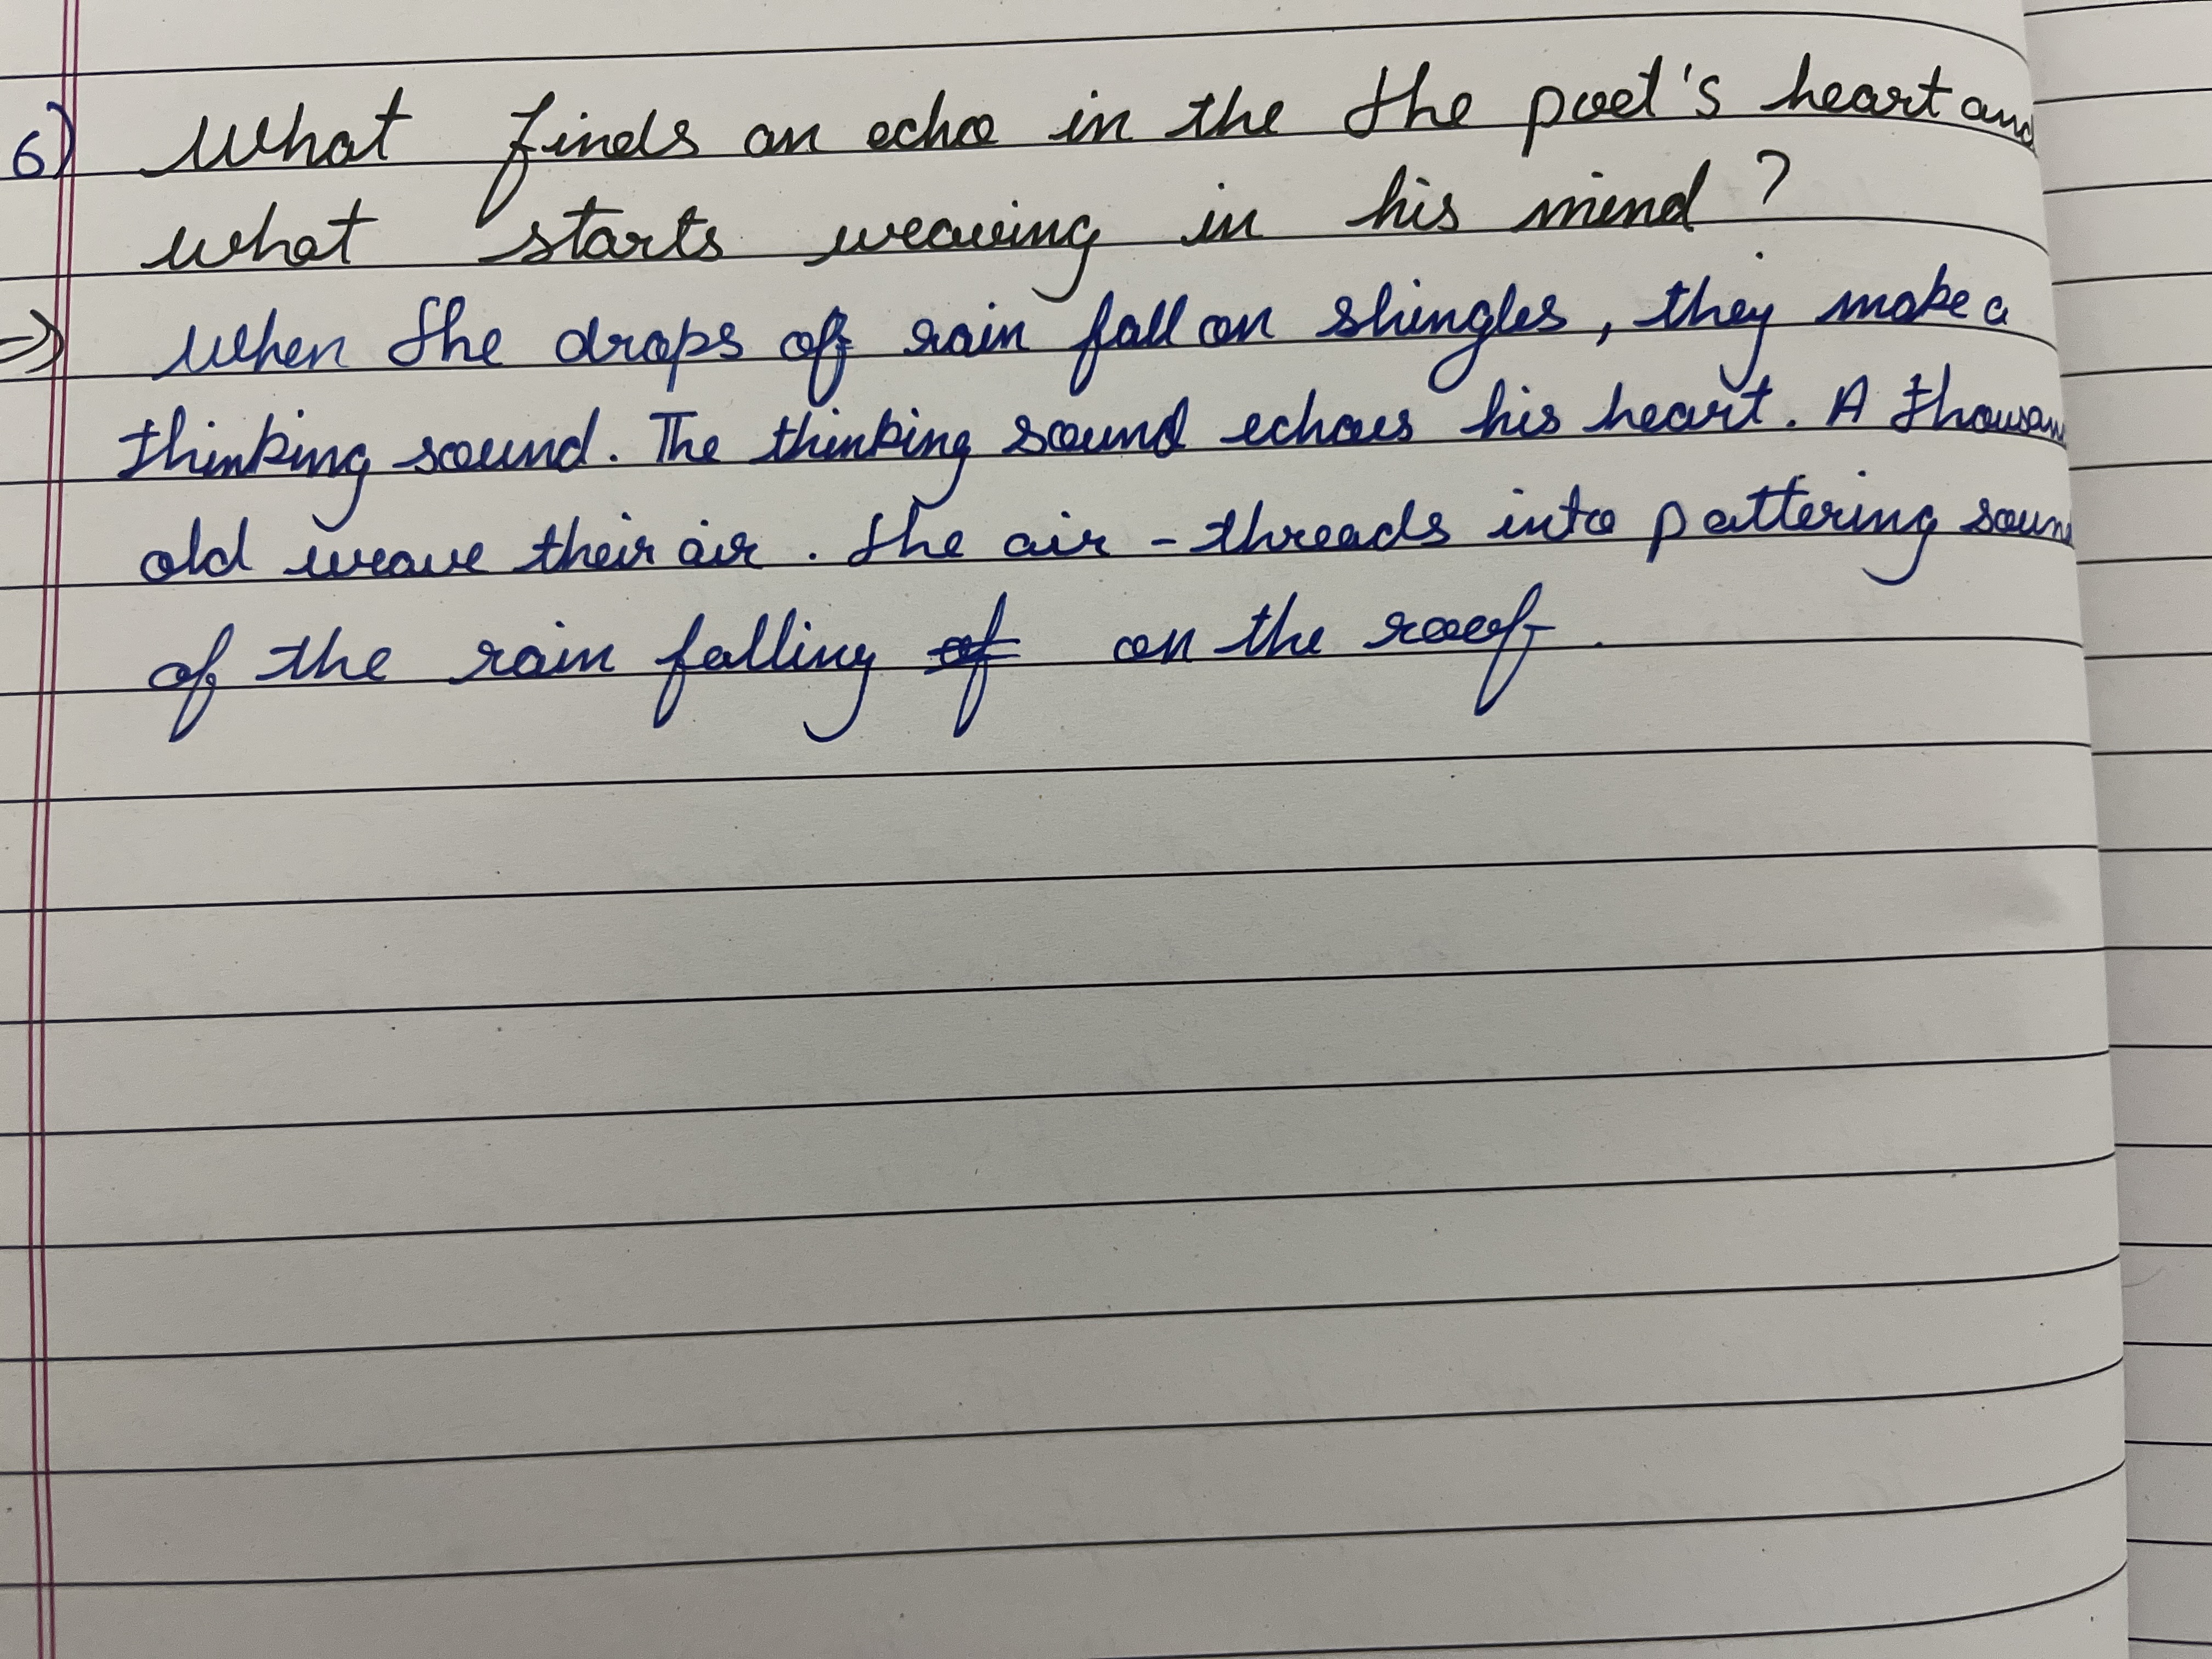 6) What finds an echo in the the poet's heart and
what starts weaving in his mind ?
=> When the drops of rain fall on shingles, they make a
thinking sound. The thinking sound echoes his heart. A thousan
old weave their air. the air - threads into pattering soun
of the rain falling of on the roof.